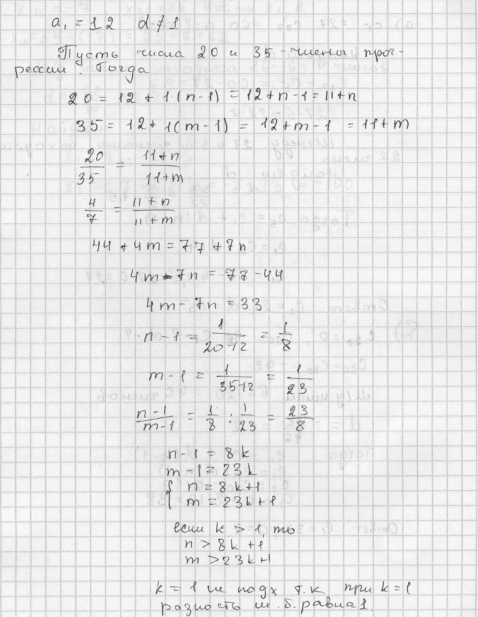 a₁ = 12 d ≠ 1
Пусть числа 20 и 35 - члены прог-
рессии. Тогда
20 = 12 + 1(n-1) = 12+n-1 = 11+n
35 = 12+1(m-1) = 12+m-1 = 11+m
20/35 = 11+n/11+m
4/7 = 11+n/11+m
44 + 4m = 77+7n
4m - 7n = 77-44
4m - 7n = 33
n-1 = 1/20-12 = 1/8
m-1 = 1/35-12 = 1/23
n-1/m-1 = 1/8 : 1/23 = 23/8
n-1 = 8k
m-1 = 23k
{ n = 8k+1
m = 23k+1
если k > 1, то
n > 8k+1
m > 23k+1
k = 1 не подх т.к при k=1
разность м.б. равна 1